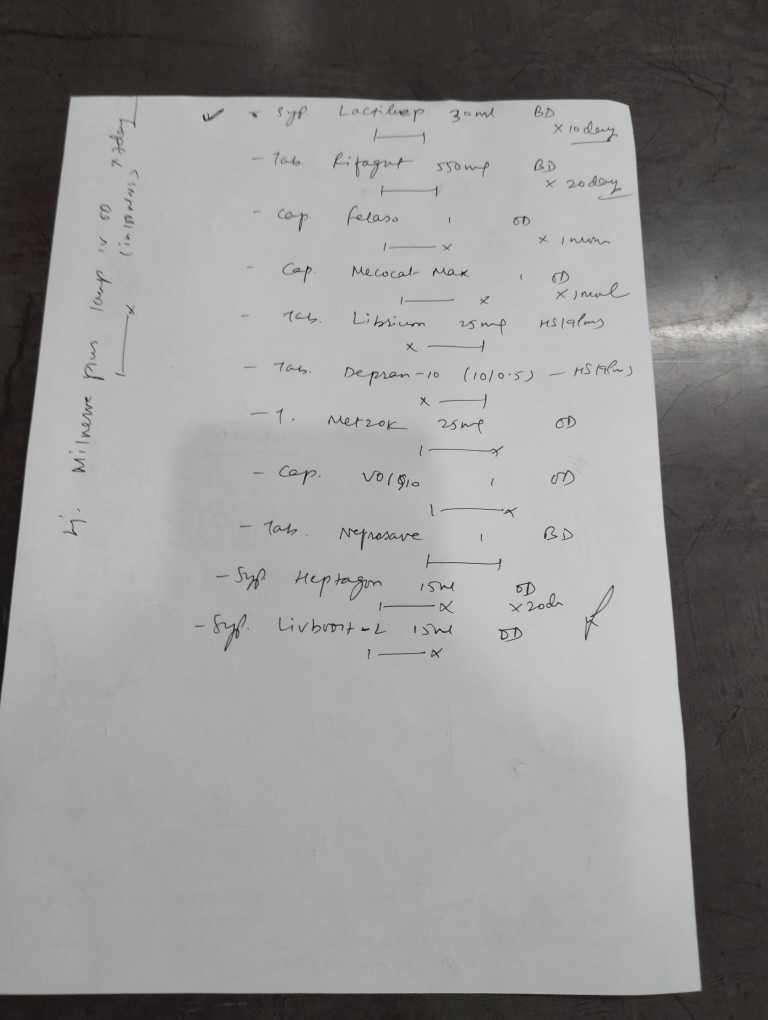 - Syp. Lactihep 30ml BD
x 10 day
- Tab. Rifagut 550mg BD
x 20 day
- Cap. 1 OD
x 1
- Cap. Mecocal Max 1 OD
x 1
- Tab. Librium 25mg HS/9pm)
x
- Tab. Depran-10 (10/0.5) - HS/9pm)
x
- T. Metzok 25mg OD
x
- Cap. 1 OD
x
- Tab. Neprosave 1 BD
- Syp. Heptagon 15ml OD
x 20d
x
- Syp. Livboost-L 15ml OD
x
Inj. Milnerve plus 1amp IV OD x 7day
(in 100ml NS)
x